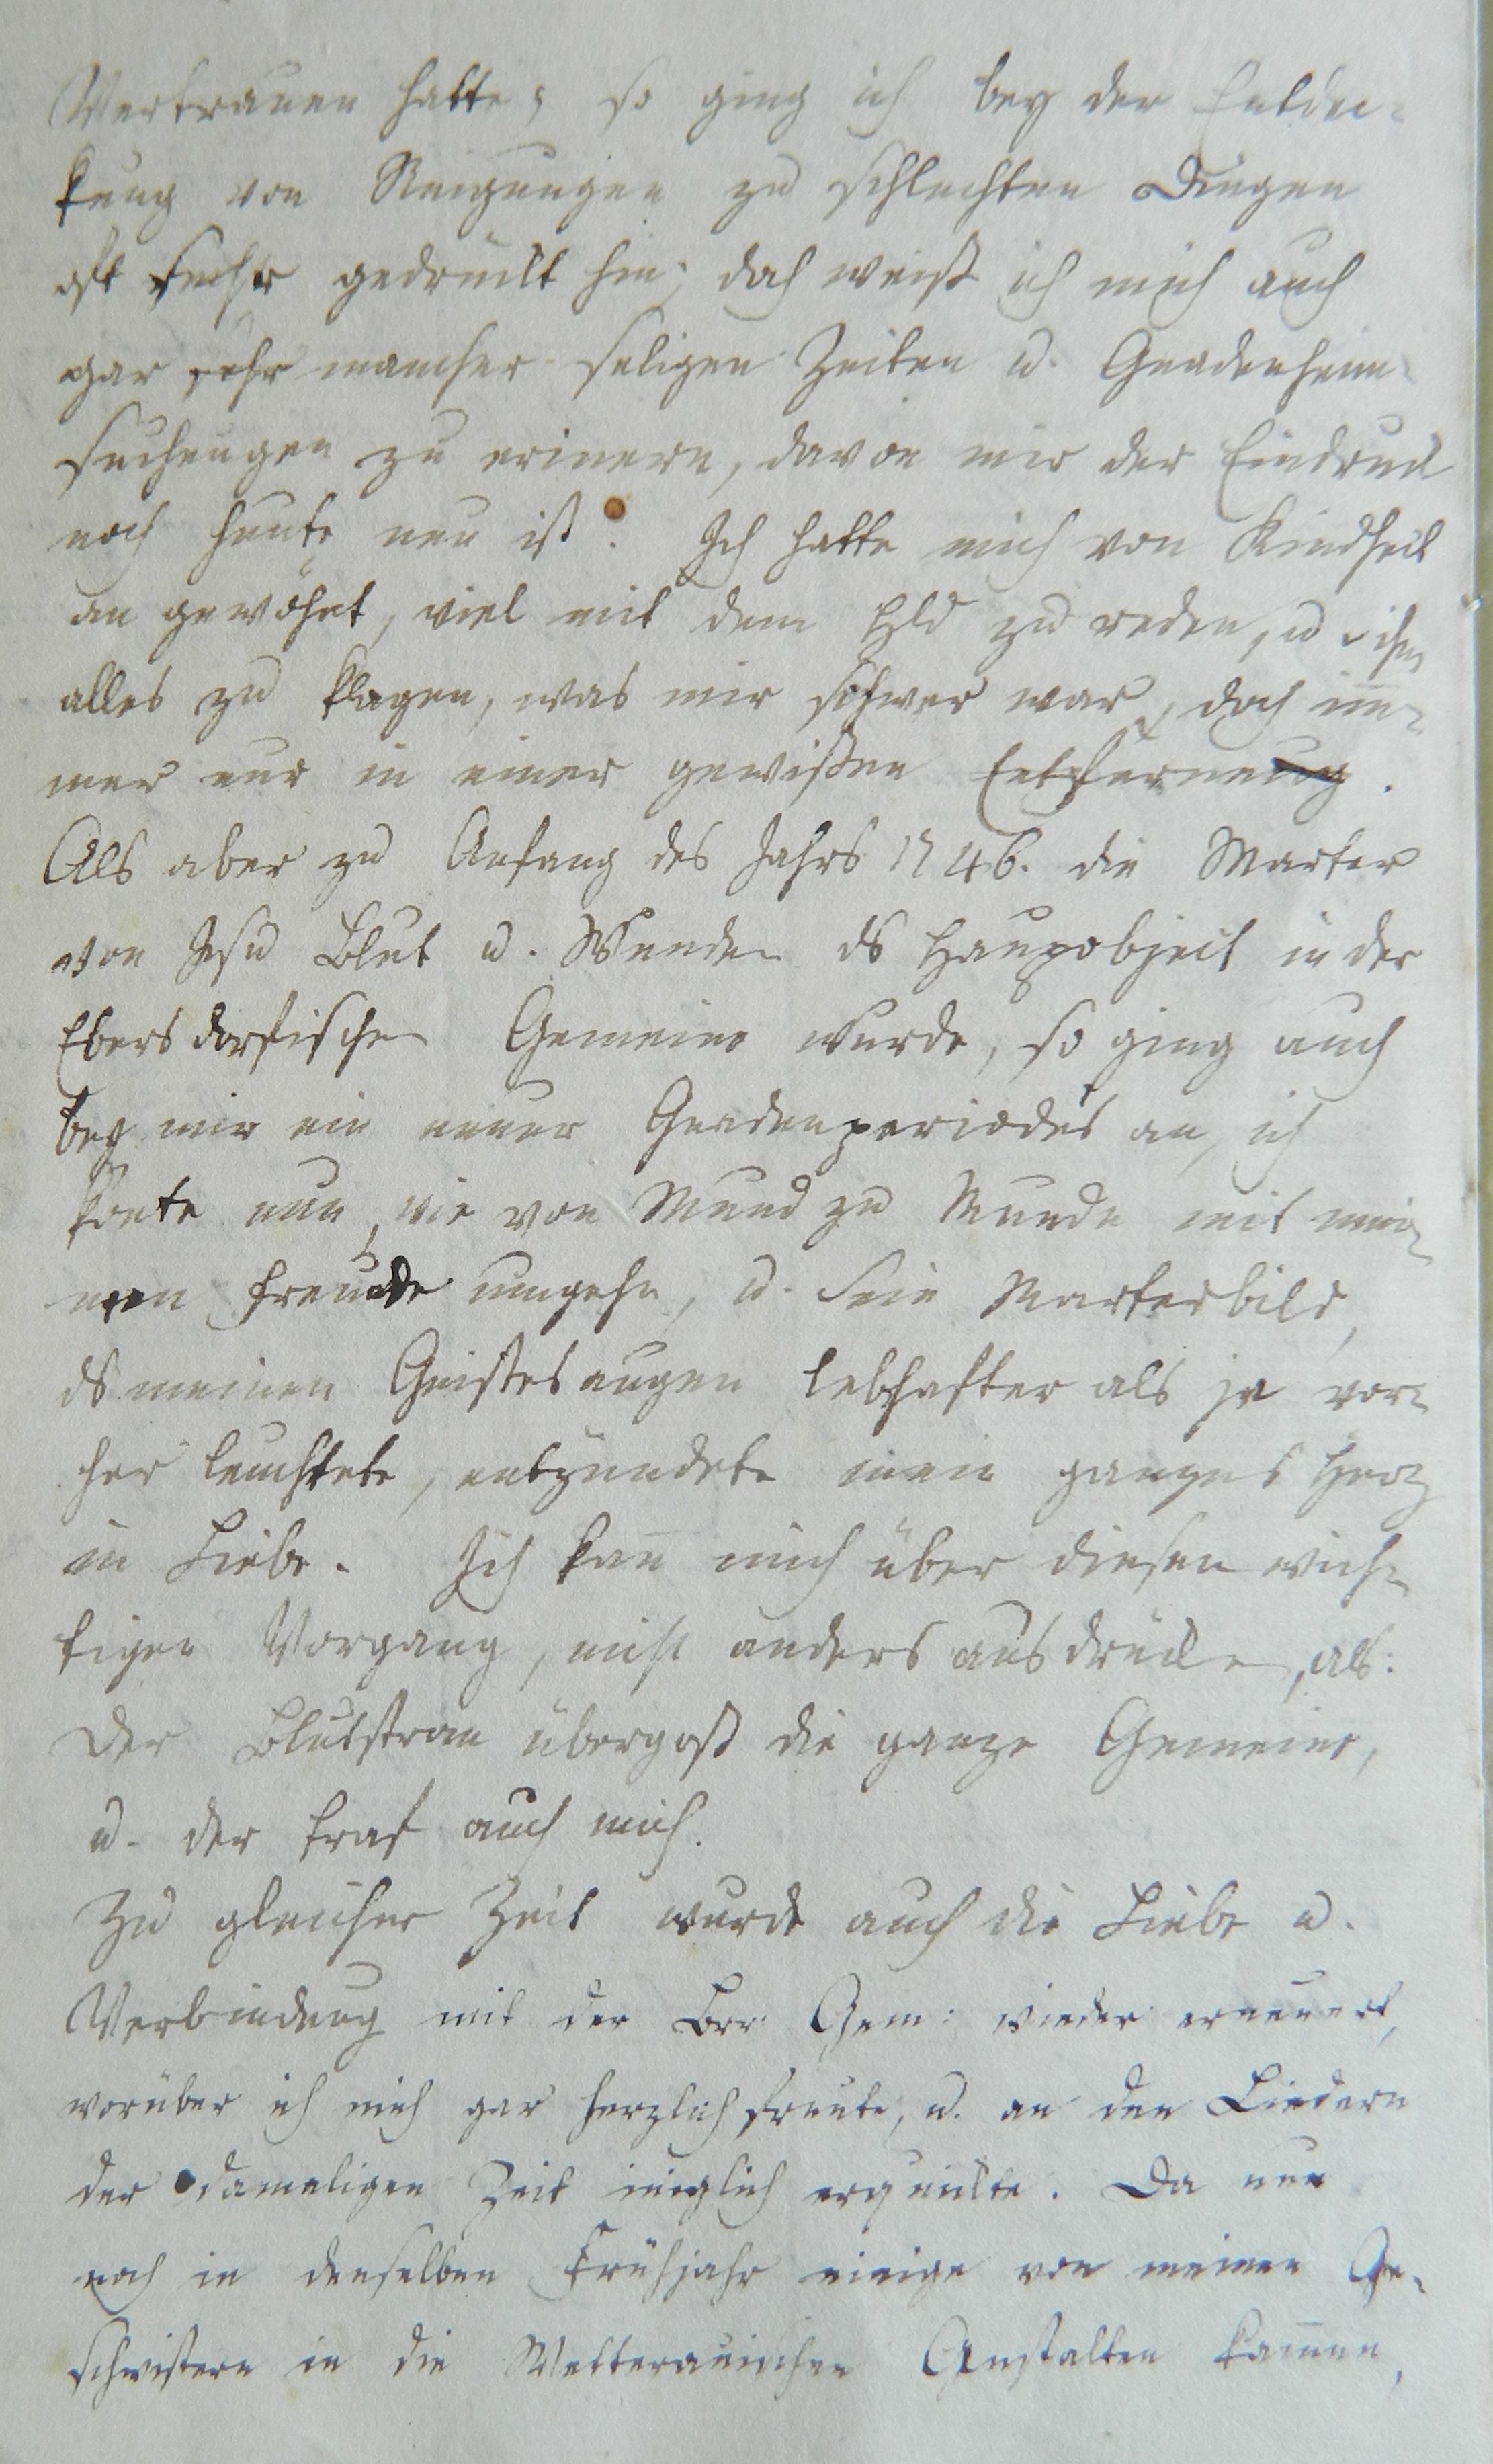 Vertrauen hatte; so ging ich bey der Entdec-
kung von Neigungen zu schlechten Dingen
oft sehr gedrückt hin; doch weiß ich mich auch
gar sehr mancher seligen Zeiten u. Gnadenheim-
suchungen zu erinern, davon mir der Eindruck
noch heute neu ist. Ich hatte mich von Kindheit
an gewöhnt, viel mit dem Hld zu reden, u ihm
alles zu klagen, was mir schwer war, doch im̄-
mer nur in einer gewißen Entfernung.
Als aber zu Anfang des Jahrs 1746. die Marter
von Jesu Blut u. Wunden ds Haupobject in der
Ebersdorfischen Gemeine wurde, so ging auch
bey mir ein neuer Gnadenperiodes an, ich
konte nun, wie von Mund zu Munde mit mei-
nen Freunde umgehn, u. sein Marterbild,
ds meinen Geistesaugen lebhafter als je vor-
her leuchtete, entzündete mein ganzes Herz
in Liebe. Ich kan̄ mich über diesen wich-
tigen Vorgang, nicht anders ausdrücken, als:
Der Blutstrom übergoß die ganze Gemeine,
u. der traf auch mich.
Zu gleicher Zeit wurde auch die Liebe u.
Verbindung mit der Brr. Gem: wieder erneuert,
worüber ich mich gar herzlich freute, u. an den Liedern
der damaligen Zeit inniglich erquickte. Da nun
noch in denselben Frühjahr einige von meinen Ge-
schwistern in die Wetterauischen Anstalten kamen,